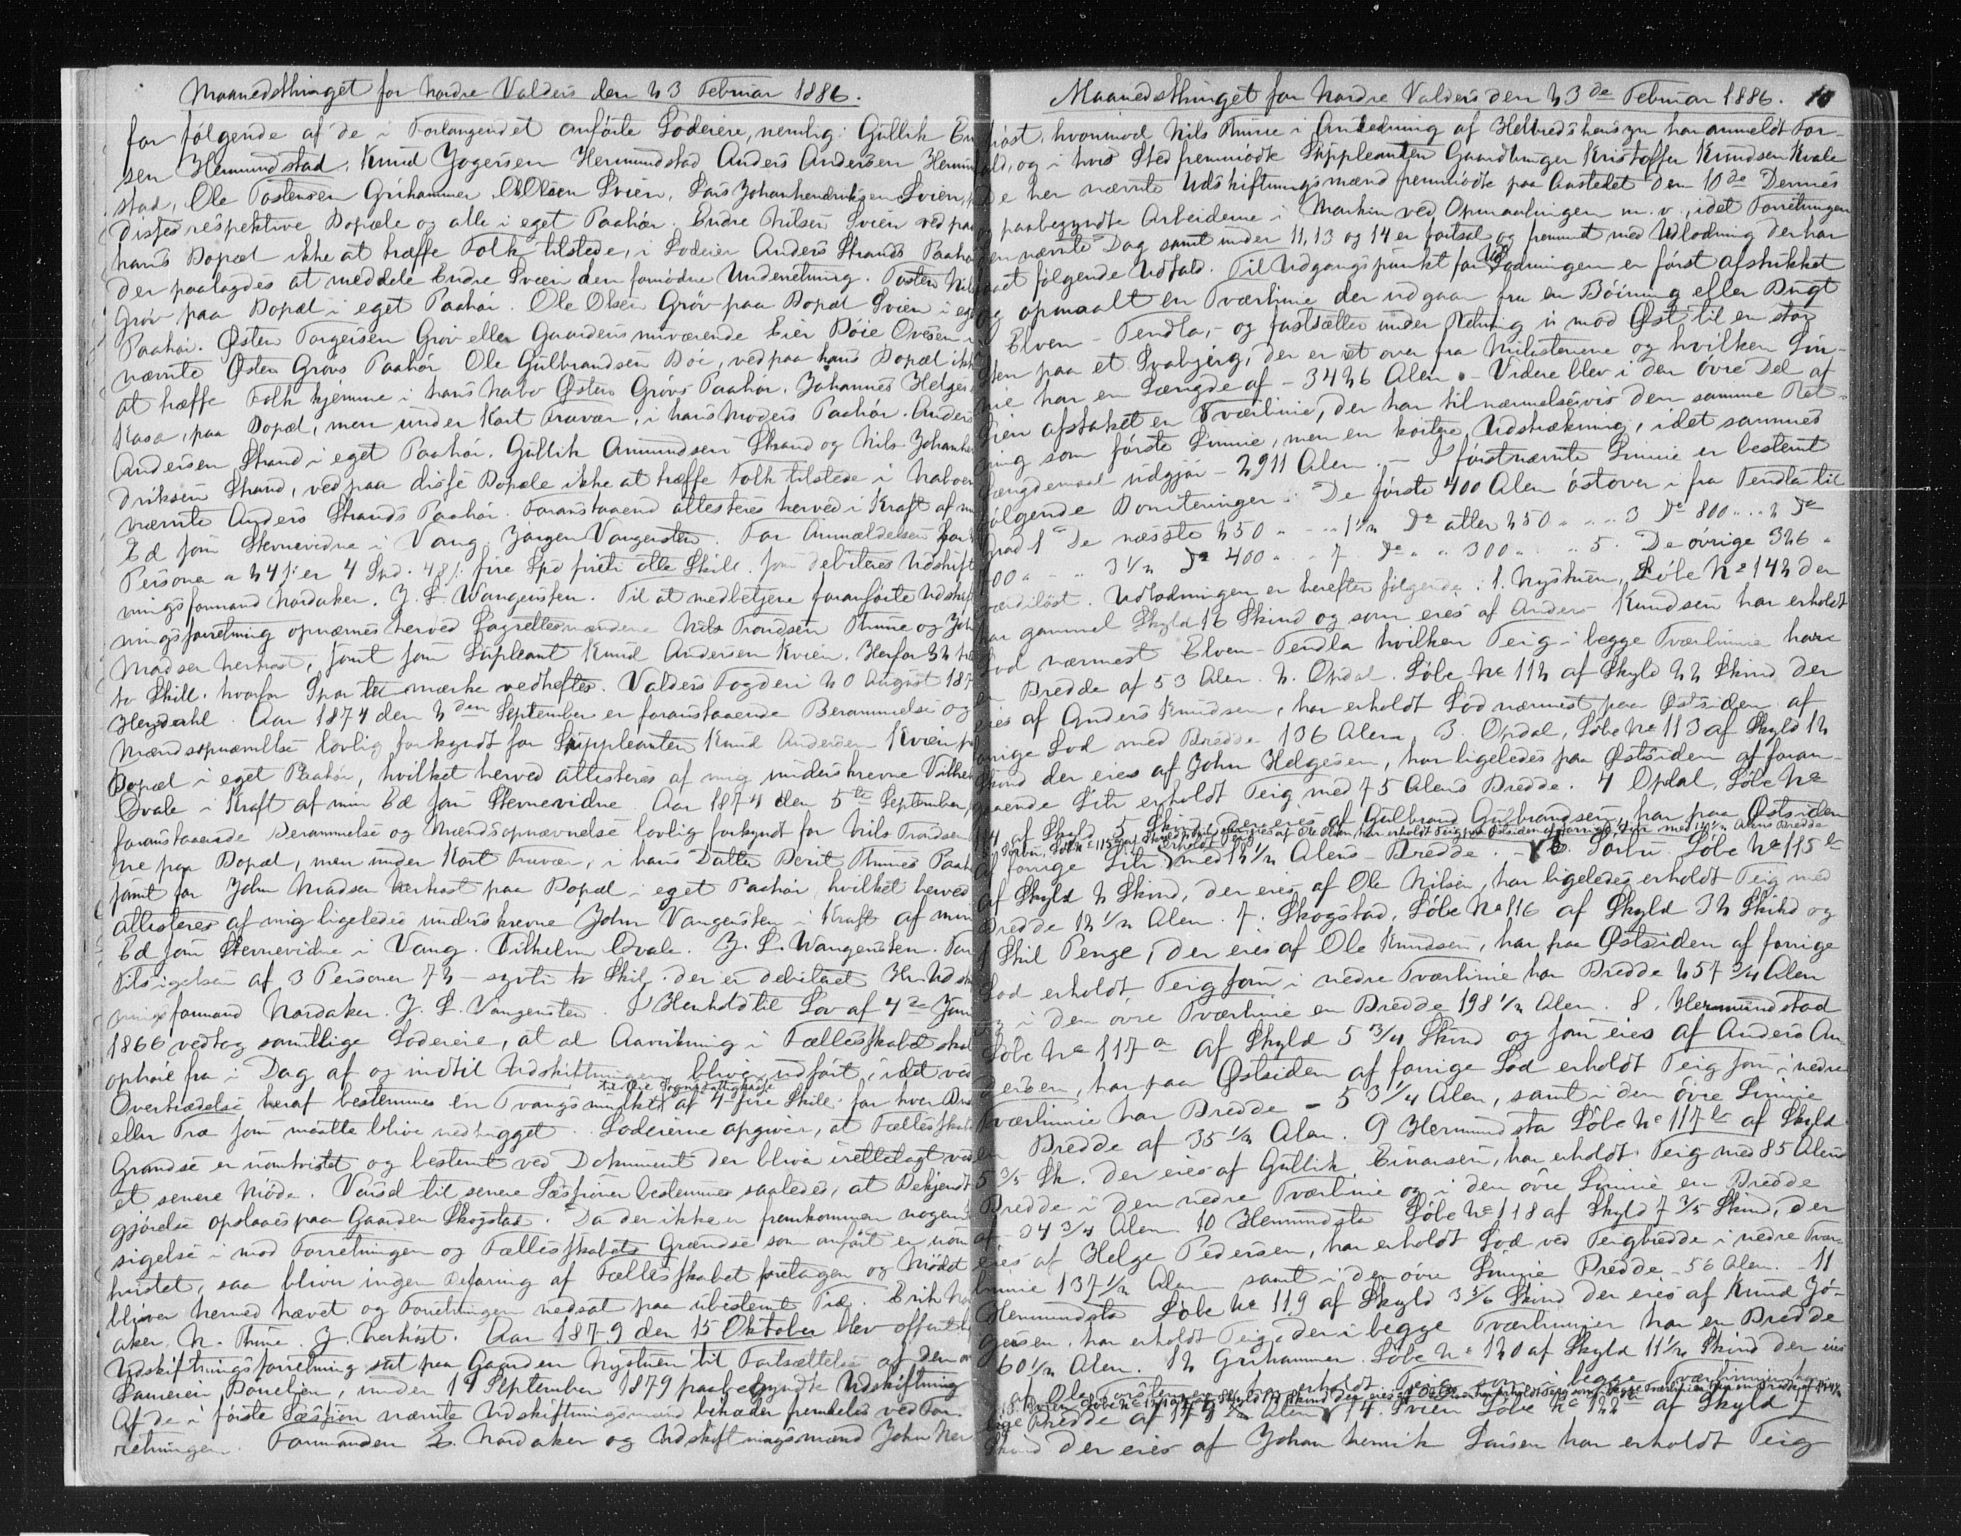 Maanedsthinget for Nordre Valders den 23 Februar 1886.
for følgende af de i Forlangendet anførte Lodeiere, nemlig: Gullik En
sen Hermundstad, Knud Jøgersen Hermundstad Anders Andersen Hermun
stad, Ole Tostensen Grihammer, O. Olsen Svien, Lars Johanhendriksen Svien,
disses respektive Bopæle og alle i eget Paahør. Endre Nilsen Svien ved paa
hans Bopæl ikke at træffe Folk tilstede, i Lodeier Anders Strands Paahø
der paalagdes at meddele Endre Svien den fornødne Underretning. Tosten Nil
Grøv paa Bopæl i eget Paahør. Ole Olsen Grøv paa Bopæl Svien i eg
Paahør. Østen Torgersen Grøv eller Gaardens nuværende Eier Boie Ovesen i
nævnte Østen Grøvs Paahør Ole Gulbrandsen Boe, ved paa hans Bopæl ikk
at træffe Folk hjemme i hans Nabo Østen Grøvs Paahør. Johannes Helges
Kasa, paa Bopæl, men under Kort Fravær, i hans Moders Paahør. Anders
Andersen Strand i eget Paahør. Gullik Amundsen Strand og Nils Johanhe
driksen Strand, ved paa disse Bopæle ikke at træffe Folk tilstede i Naboen
nævnte Anders Strands Paahør. Foranstaaend attesteres herved i Kraft af m
Ed som Stevnevidne i Vang. Jørgen Vangensten. For Anmældelsen for
Personer a 24 ß er 4 Spd. 48 ß. fire Spd firti otte Skill. som debiteres Udskift
ningsformand Nordaker. J. L. Wangensten. Til at medbetjene foranførte Udskift
ningsforretning opnævnes herved Lagrettesmændene Nils Trondsen Thune og Joh
Madsen Herhost, samt som Supleant Knud Andersen Kvien. Herfor 32 tre
to Skill. hvorfor Spor tel mærke vedheftes. Valders Fogderi 20 August 187
Heyerdahl. Aar 1874 den 2den September er foranstaaende Berammelse og
Mændsopnævnelse lovlig forkyndt for Suppleanten Knud Andersen Kvien p
Bopæl i eget Paahør, hvilket herved attesteres af mig underskrevne Vilhel
Qvale i Kraft af min Ed som Stevnevidne. Aar 1874 den 5te September,
foranstaaende Berammelse og Mændsopnævnelse lovlig forkyndt for Nils Trondsen
ne paa Bopæl, men under Kort Fravær, i hans Datter Berit Thunes Paah
samt for John Madsen Herhost paa Bopæl i eget Paahør hvilket herved
attesteres af mig ligeledes underskrevne John Vangensten i Kraft af min
Ed som Stevnevidne i Vang. Vilhelm Qvale. J. L. Wangensten. For
Tilsigelsen af 3 Personer 72 - sytti to Skil. der er debiteret Hr. Udsk
nings formand Nordaker. J. L. Vangensten. I Henhold til Lov af 4de Jun
1866 vedtog samtlige Lodeiere, at al Aavirkning i Fællesskabet skal
ophøre fra i Dag af og indtil Udskiftningen bliver udført, idet ved
til Øie
Overtrædelse heraf bestemmes en Tvangsmulkt af 4 - fire Skill. for hver Bus
eller Træ som maatte blive nedhugget. Lodeierne opgiver, at Fællesskab
Grændse er uomtvistet og bestemt ved Dokument der bliver irettelagt ved
et senere Møde. Varsel til senere Sessioner bestemmes saaledes, at Bekjendt
gjørelse opslaaes paa Gaarden Skogstad. Da der ikke er fremkommen nogen
sigelse i mod Forretningen og Fællesskabets Grændse som anført er uom
tvistet, saa bliver ingen Befaring af Fællesskabet foretagen og Mødet
bliver hermed hævet og Forretningen nedsat paa ubestemt Tid. Erik Nord
aker. N. Thune. J. Herhost. Aar 1879 den 15 Oktober blev offentli
Udskiftningsforretning sat paa Gaarden Nystuen til Fortsættelse af den
Sameien, under 19 September 1879 paabegyndte Udskiftning
Af de i første Session nævnte Udskiftningsmænd fremdeles ved For
retningen. Formanden E. Nordaker og Udskiftningsmænd John Her
Maanedsthinget for Nordre Valders den 23de Februar 1886. 10
høst, hvorimod Nils Thune i Anledning af Helbredshensyn har anmeldt For-
ald, og i hvis Sted fremmødte Suppleanten Gaardbruger Kristoffer Knudsen Kvale
De her nævnte Udskiftningsmænd fremmødte paa Aastedet den 10de Dennes
og paabegyndte Arbeiderne i Marken ved Opmaalingen m. v., idet Forretningen
den nævnte Dag samt under 11, 13 og 14 er fortsat og fremmet med Udlodning der har
faaet følgende Udfald. Til Udgangspunkt for Udlodningen er først afstukket
og opmaalt en Tværlinie der udgaar fra en Bøining eller Bugt
i Elven - Tendla, - og fastsættes under Retning i mod Øst til en stor
Sten paa et Svabjerg, der er ret over fra Milistenene og hvilken Lin-
nie har en Længde af - 3426 Alen. - Videre blev i den øvre Del af
Lien afstaket en Tværlinie, der har tilnærmelsesvis den samme Ret-
ning som første Linnie, men en kortere Udstrækning, idet sammes
Længdemaal udgjør - 2911 Alen. - I førstnævnte Linnie er bestemt
følgende Boniteringer: De første 400 Alen østover i fra Tendla til
Grad 1 De næste 250 " - " 1½ Do atter 250 " " " 3 Do 800 " " 2 Do
400 " - " 3½ Do 400 " " 7 Do " " 300 " " " 5. De øvrige 326 "
værdiløst. Udlodningen er herefter følgende: 1. Nystuen, Løbe No 142 der
har gammel Skyld 16 Skind og som eies af Anders Knudsen har erholdt
Lod nærmest Elven - Tendla hvilken Teig i begge Tværlinie have
en Bredde af 53 Alen. 2. Opdal. Løbe No 112 af Skyld 22 Skind der
eies af Anders Knudsen, har erholdt Lod nærmest paa Østsiden af
forrige Lod med Bredde 136 Alen, 3. Opdal, Løbe No 113 af Skyld 12
Skind der eies af John Helgesen, har ligeledes paa Østsiden af foran-
staaende Litr erholdt Teig med 75 Alens Bredde. 4 Opdal, Løbe No
114 af Skyld 5 Skind, der eies af Gulbrand Gulbrandsen, har paa Østsiden
5 Sørbu, Løbe No 115a af Skyld 2 Skind, der eies af Ole Olsen, har erholdt Teig paa Østsiden af forrige Litr med 12½ Alens Bredde
af forrige Litr erholdt Teig med 12½ Alens - Bredde. - 6. Sørbu Løbe No 115b
af Skyld 2 Skind, der eies af Ole Nilsen, har ligeledes erholdt Teig med
Bredde 12½ Alen. 7. Skogstad, Løbe No 116 af Skyld 32 Skind og
1 Skil Penge, der eies af Ole Knudsen, har paa Østsiden af forrige
Lod erholdt Teig som i nedre Tværlinie har Bredde 257¾ Alen
og i den øvre Tværlinie en Bredde 198½ Alen. 8. Hermundstad
Løbe No 117a af Skyld 5¾ Skind og som eies af Anders An
dersen, har paa Østsiden af forrige Lod erholdt Teig som i nedre
Tværlinie har Bredde - 53¼ Alen, samt i den øvre Linnie
en Bredde af 35½ Alen. 9 Hermundsta Løbe No 117b af Skyld
5 3/5 Sk. der eies af Gullik Einarsen, har erholdt Teig med 85 Alens
Bredde i den nedre Tværlinie og i den øvre Linnie en Bredde
af 34¾ Alen. 10 Hermundsta Løbe No 118 af Skyld 7 3/5 Skind, der
eies af Helge Pedersen, har erholdt Lod ved Teigbredde i nedre Tvær-
linnie 137½ Alen samt i den øvre Linnie Bredde - 56 Alen. - 11
Hermundsta Løbe No 119 af Skyld 3 5/6 Skind der eies af Knud Jø-
gersen, har erholdt Teig, der i begge Tværlinnier har en Bredde
60½ Alen. 12 Grihammer. Løbe No 120 af Skyld 11½ Skind der eies
af Ole Torstensen, har erholdt Teig som i begge Tværlinnier har
lige Bredde af Alen 14. Svien Løbe No 122b af Skyld 7
Skind der eies af Johan Henrik Larsen har erholdt Teig